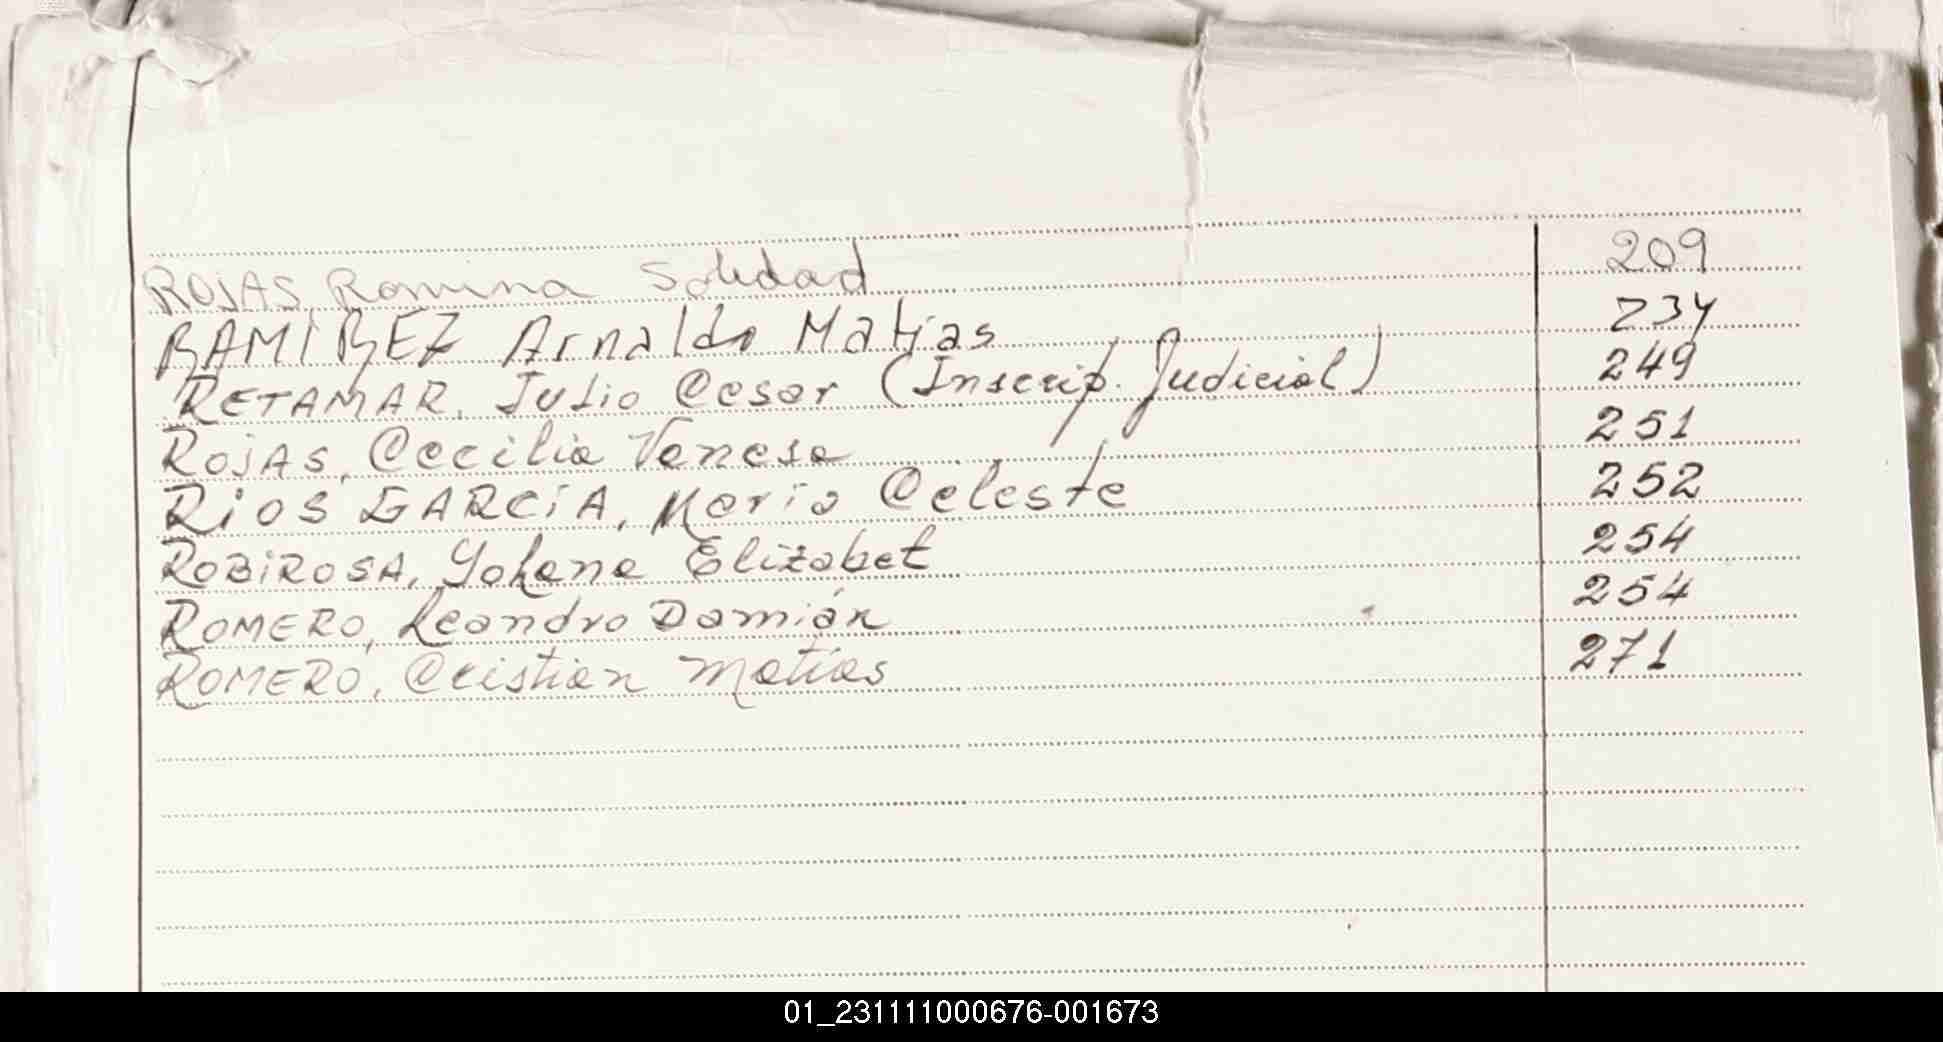 ROJAS, Romina Soledad 209
RAMIREZ Arnaldo Matias 234
RETAMAR, Julio Cesar (Inscrip. Judicial) 249
ROJAS, Cecilia Vanesa 251
RIOS GARCIA, Maria Celeste 252
ROBIROSA, Yohana Elizabet 254
ROMERO, Leandro Damián 254
ROMERO, Cristian Matías 271
01_231111000676-001673